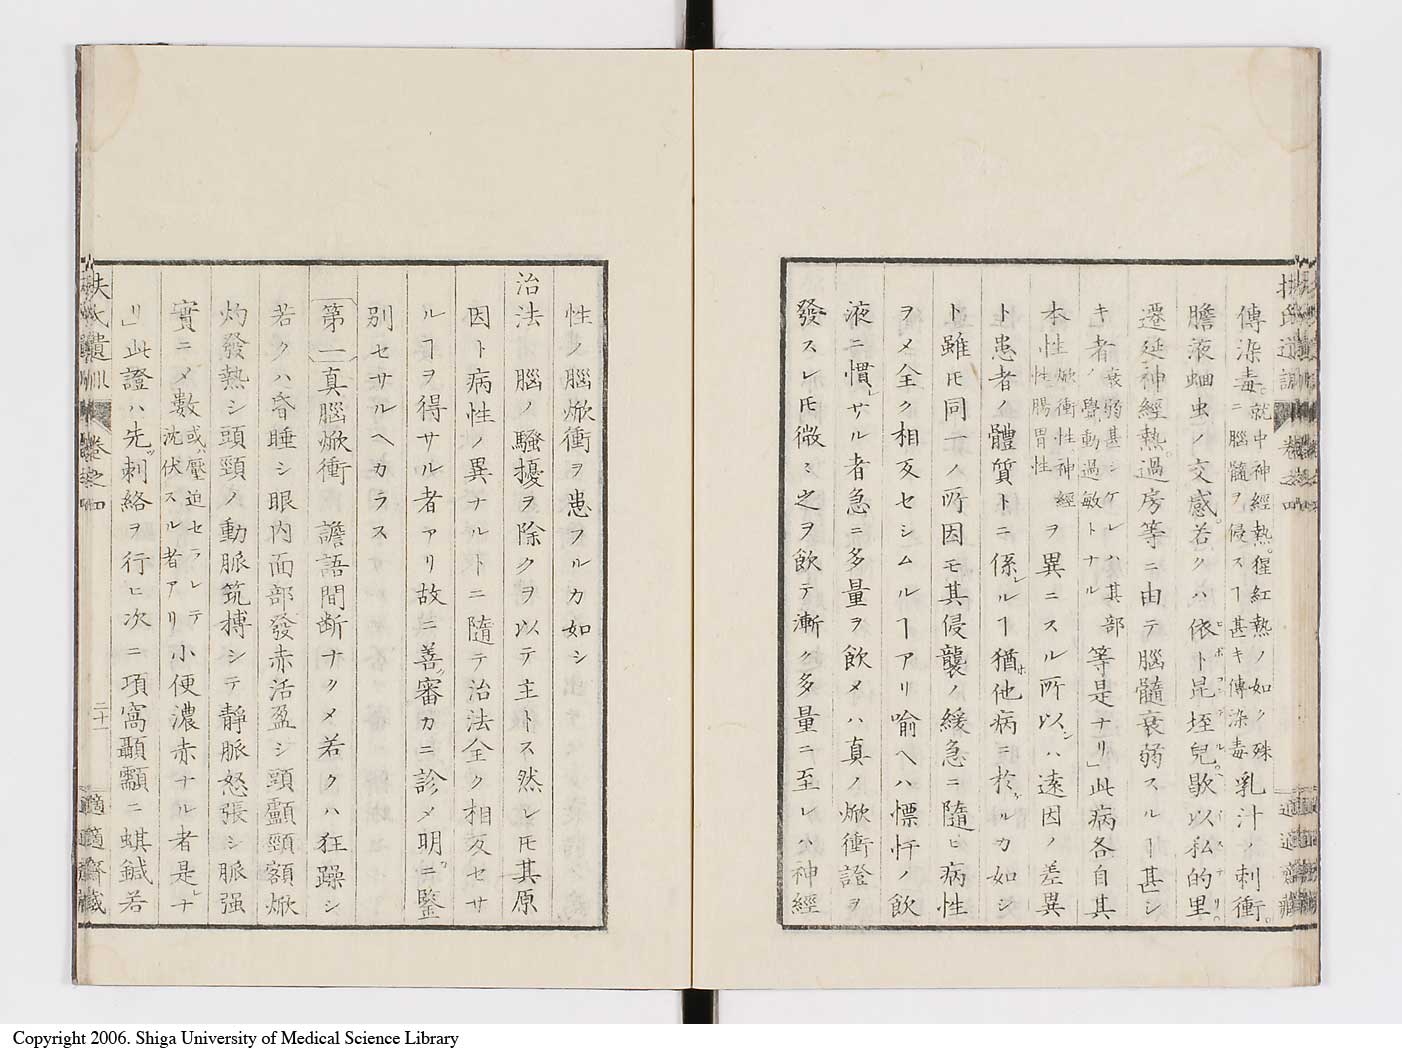 傳染毒。就中神經熱。猩紅熱ノ如ク殊ニ腦髓ヲ侵スヿ甚キ傳染毒乳汁ノ刺衝。
膽液蛔虫ノ交感。若クハ依ト昆垤兒。歇以私的里
遷延神經熱。過房等ニ由テ腦髓衰弱スルヿ甚シ
キ者ノ衰弱甚シケレハ其部ノ覺動過敏トナル等是ナリ」此病各自其
本性焮衝性神經性腸胃性ヲ異ニスル所以ハ遠因ノ差異
ト患者ノ體質トニ係ルヿ猶他病ニ於ルカ如シ
ト雖𪜈同一ノ所因モ其侵襲ノ緩急ニ隨ヒ病性
ヲメ全ク相反セシムルヿアリ喻ヘハ慓悍ノ飲
液ニ慣レサル者急ニ多量ヲ飲メハ真ノ焮衝證ヲ
發スレ𪜈微〻之ヲ飲テ漸ク多量ニ至レハ神經
性ノ腦焮衝ヲ患フルカ如シ
治法 腦ノ騷擾ヲ除クヲ以テ主トス然レ𪜈其原
因ト病性ノ異ナルトニ隨テ治法全ク相反セサ
ルヿヲ得サル者アリ故ニ善ク審カニ診メ明ニ鑒
別セサルヘカラス
第一真腦焮衝 譫語間断ナクメ若クハ狂躁シ
若クハ昏睡シ眼内面部發赤活盈シ頭顱頸額焮
灼發熱シ頭頸ノ動脈筑搏シテ靜脈怒張シ脈强
實ニメ數或ハ壓迫セラレテ沈伏スル者アリ小便濃赤ナル者是レナ
リ」此證ハ先ツ刺絡ヲ行ヒ次ニ項窩顳顬ニ蜞鍼若
扶氏遺訓 卷之四 二十一 適適齋藏